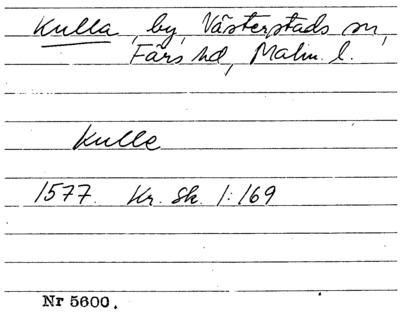 Kulla, by, Västerstads sn,
Färs hd, Malm. l.
Kulle
1577. Kr. Sk. 1:169
Nr 5600.